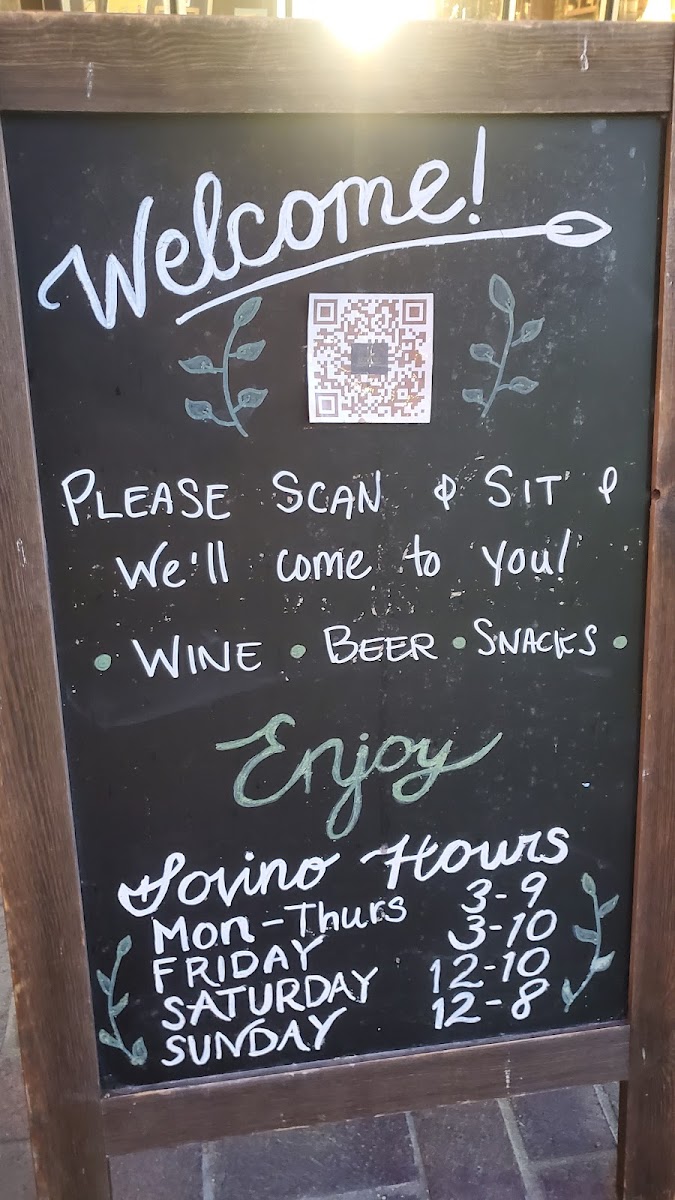 Welcome!
PLEASE SCAN & SIT &
We'll come to you!
• WINE • BEER • SNACKS •
Enjoy
Sovino Hours
Mon-Thurs 3-9
FRIDAY 3-10
SATURDAY 12-10
SUNDAY 12-8